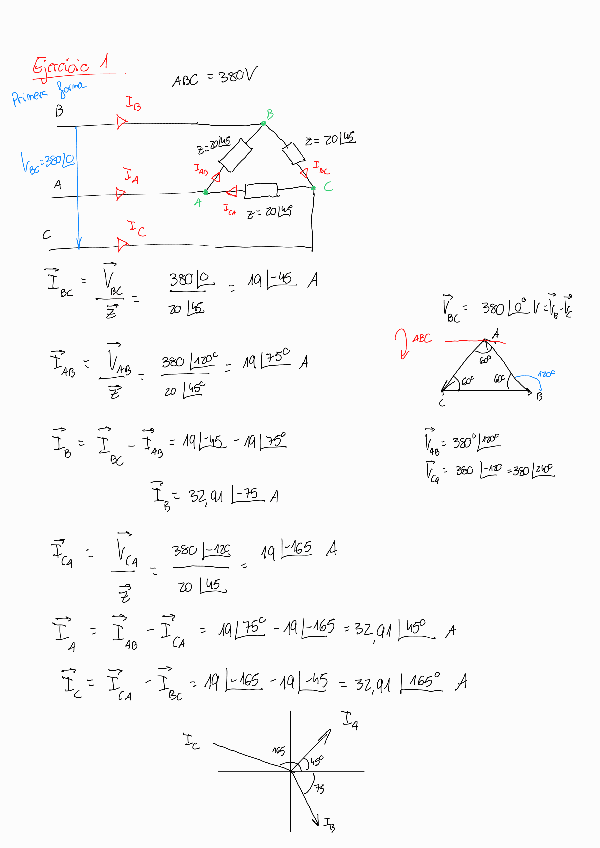 Ejercicio 1
ABC = 380V
Primera forma
B
I_B
B
Z=20∠45
Z=20∠45
V_BC=380∠0
I_AB
I_BC
A
I_A
A
I_CA
C
Z=20∠45°
C
I_C
I_BC = V_BC / Z = 380∠0 / 20∠45 = 19∠-45 A
V_BC = 380∠0° V=V_B-V_C
ABC
A
60°
60°
60°
120°
C
B
I_AB = V_AB / Z = 380∠120° / 20∠45° = 19∠75° A
V_AB = 380°∠120°
V_CA = 380∠-120 = 380∠240°
I_B = I_BC - I_AB = 19∠-45 - 19∠75°
I_B = 32,91∠-75 A
I_CA = V_CA / Z = 380∠-120 / 20∠45 = 19∠-165 A
I_A = I_AB - I_CA = 19∠75° - 19∠-165 = 32,91∠45° A
I_C = I_CA - I_BC = 19∠-165 - 19∠-45 = 32,91∠165° A
I_A
I_C
165
45°
75
I_B